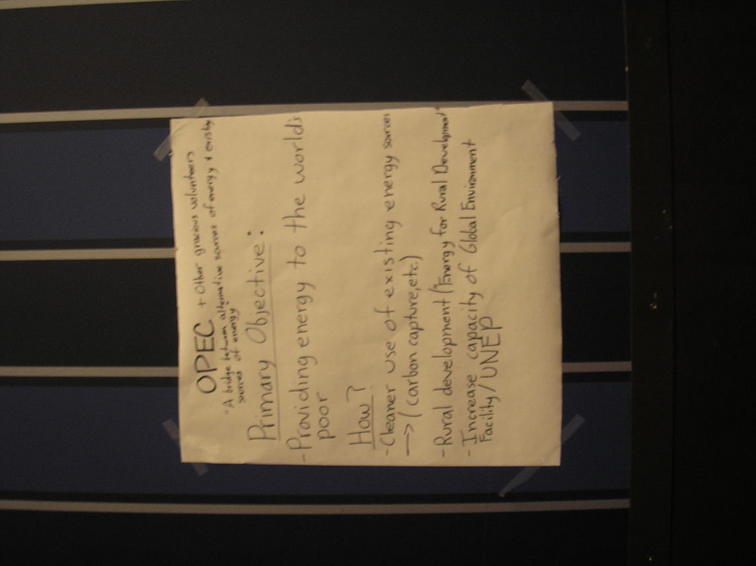 OPEC + Other gracious volunteers
"A bridge between alternative sources of energy & existing
sources of energy
Primary Objective:
-Providing energy to the world's
poor
How?
-Cleaner use of existing energy sources
-> (carbon capture, etc.)
-Rural development ("Energy for Rural Development"
-Increase capacity of Global Environment
Facility/UNEP